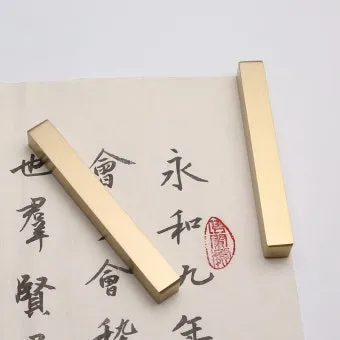 永和九年
會會稽
也羣賢